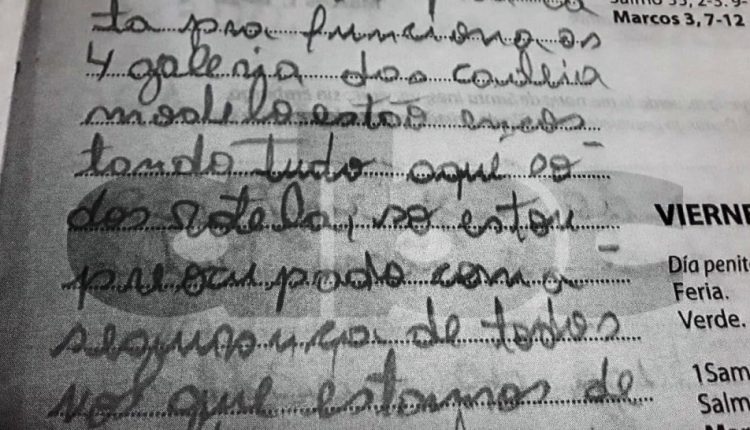 ta pra funciona os
4 galeria dos cadeia
modelo estão encos
tando tudo aqui se
des rotela, so estou
preocupado com a
segurança de todos
nos que estamos de
Marcos 3, 7-12
VIERNE
Día penit
Feria.
Verde.
1Sam
Salm